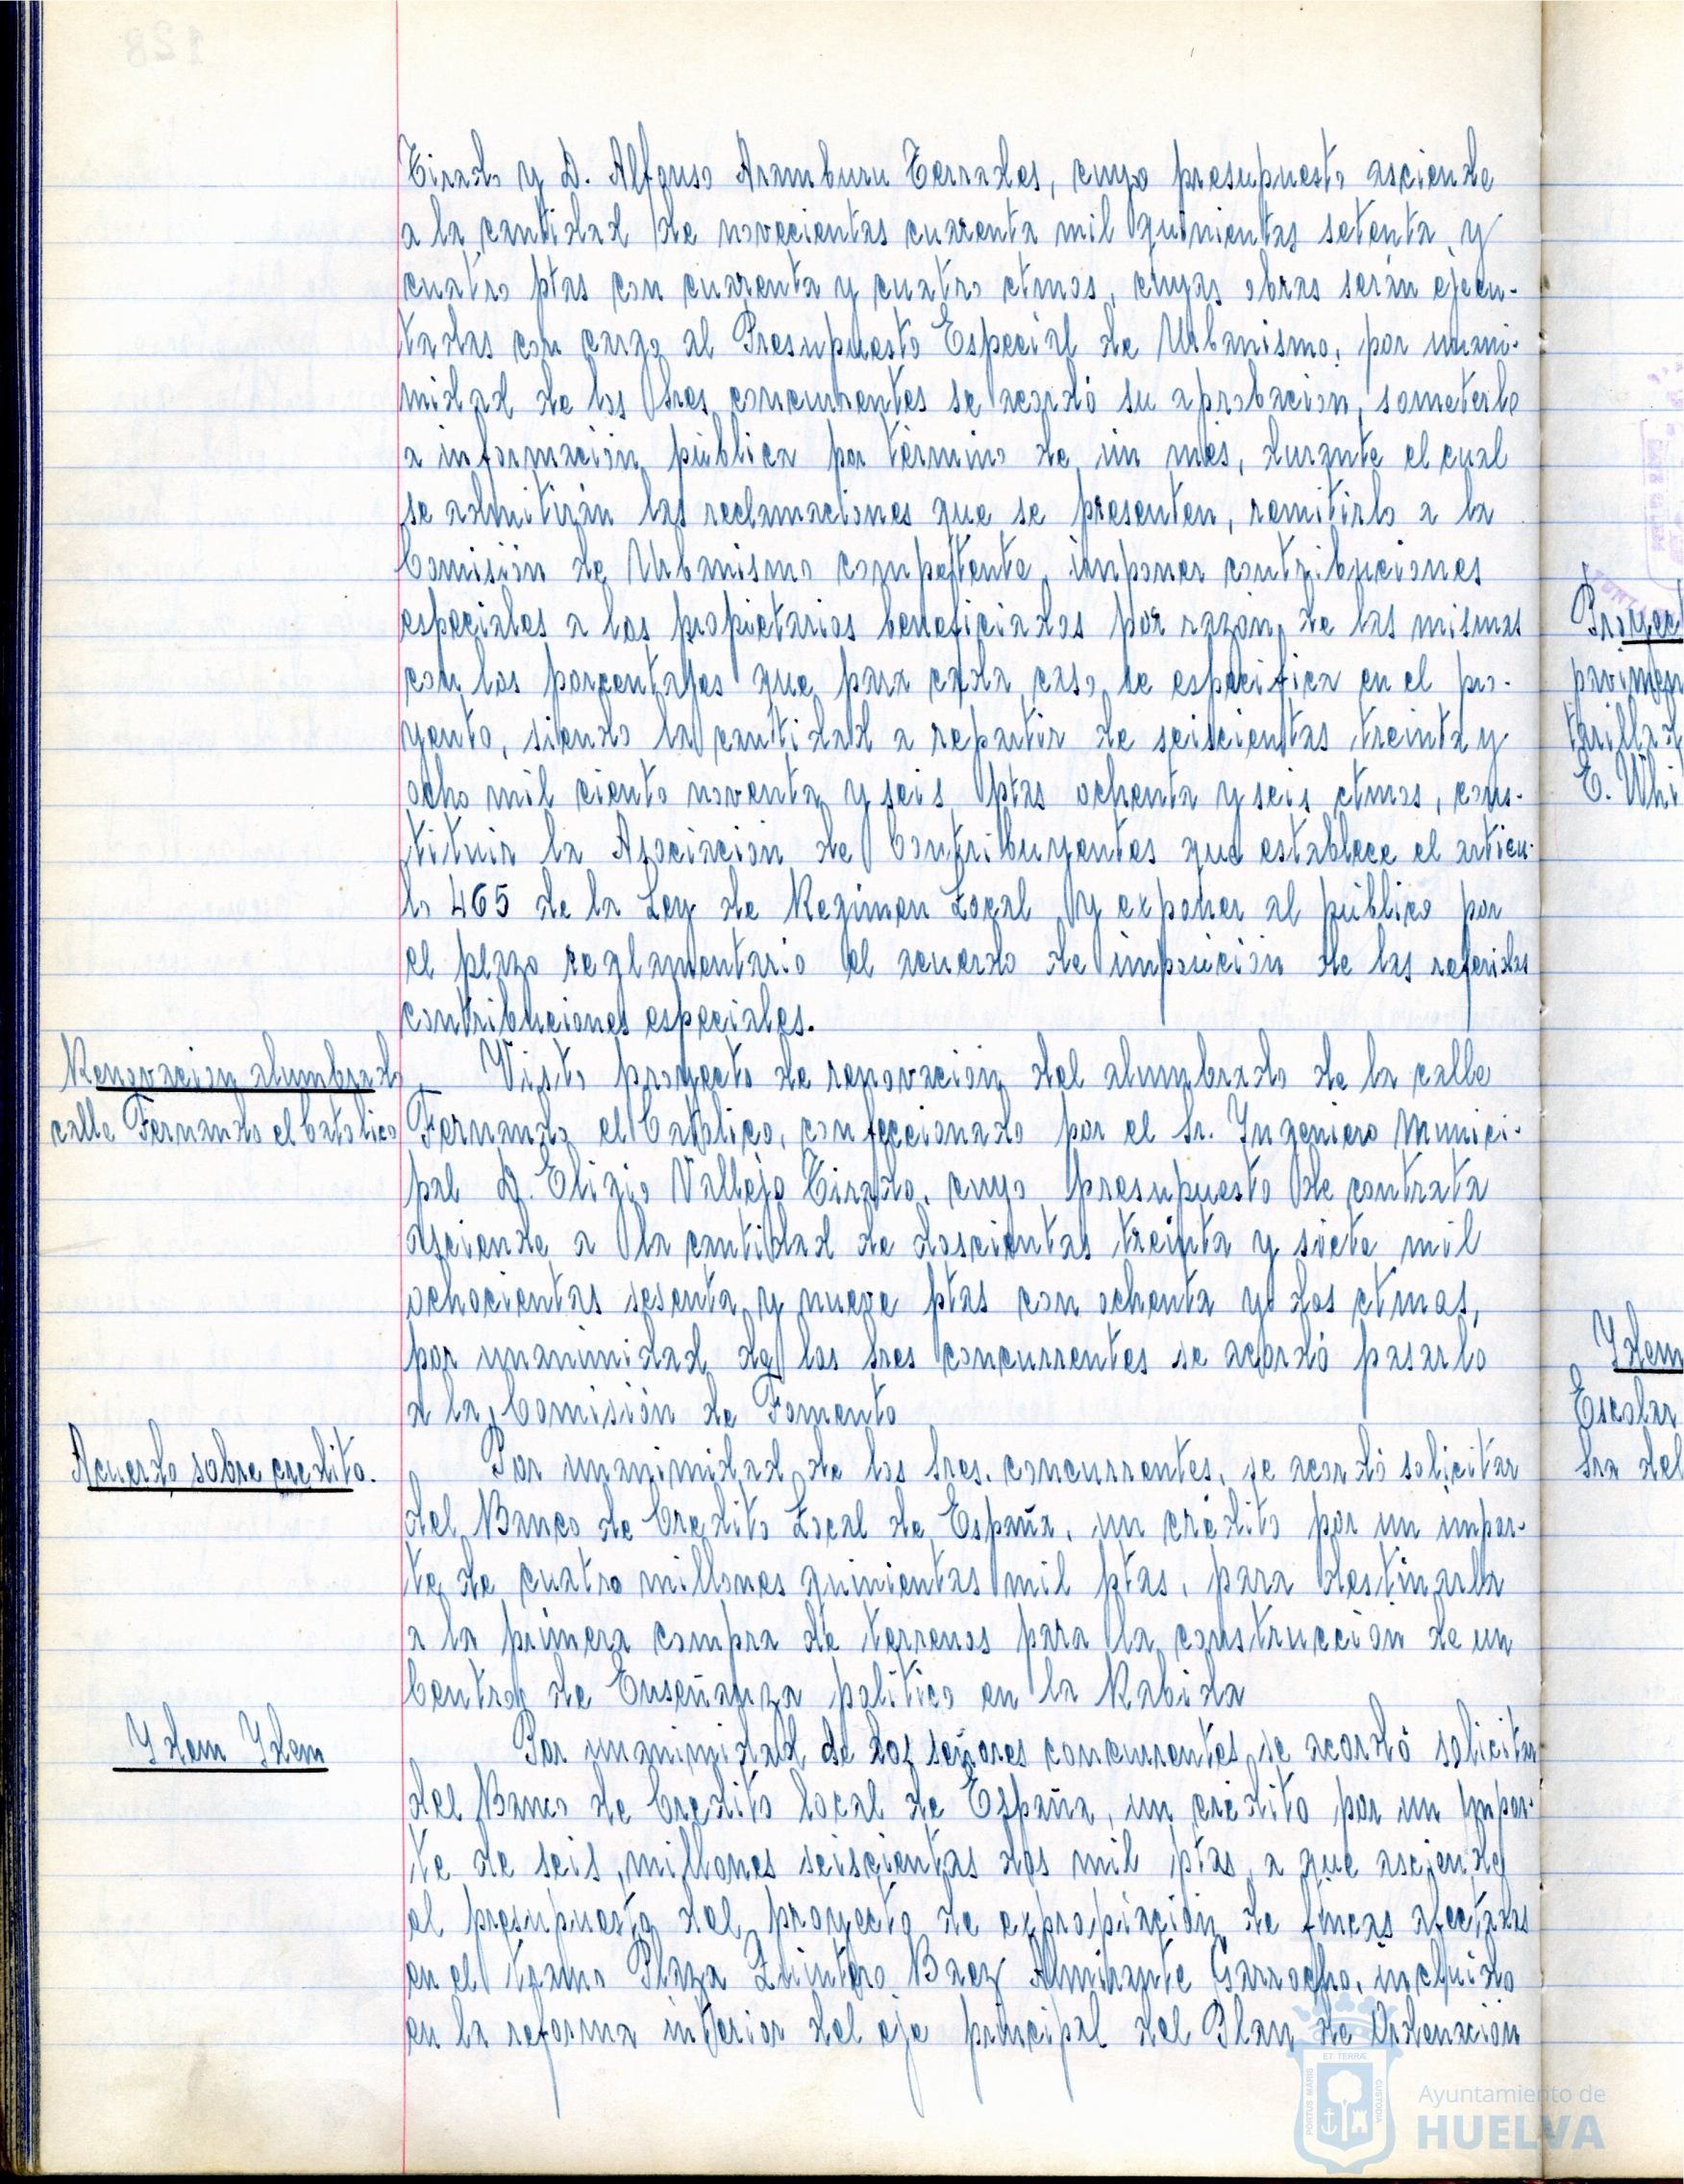 Tirado y D. Alfonso Aramburu Terrades, cuyo presupuesto asciende
a la cantidad de novecientas cuarenta mil quinientas setenta y
cuatro ptas con cuarenta y cuatro ctmos, cuyas obras serán ejecu-
tadas con cargo al Presupuesto Especial de Urbanismo, por unani-
midad de los Sres concurrentes se acordó su aprobación, someterlo
a información pública por término de un mes, durante el cual
se admitirán las reclamaciones que se presenten, remitirlo a la
Comisión de Urbanismo competente, imponer contribuciones
especiales a los propietarios beneficiados por razón de las mismas
con los porcentajes que para cada caso se especifica en el pro-
yecto, siendo la cantidad a repartir de seiscientas treinta y
ocho mil ciento noventa y seis ptas ochenta y seis ctmos, cons-
tituir la Asociación de Contribuyentes que establece el articu-
lo 465 de la Ley de Regimen Local y exponer al público por
el plazo reglamentario el acuerdo de imposición de las referidas
contribuciones especiales.
Renovacion alumbrado
calle Fernando el Catolico
Visto proyecto de renovación del alumbrado de la calle
Fernando el Católico, confeccionado por el Sr. Ingeniero Munici-
pal D. Eligio Vallejo Tirado, cuyo presupuesto de contrata
asciende a la cantidad de doscientas treinta y siete mil
ochocientas sesenta y nueve ptas con ochenta y dos ctmos,
por unanimidad de los Sres concurrentes se acordó pasarlo
a la Comisión de Fomento
Acuerdo sobre credito.
Por unanimidad de los Sres. concurrentes, se acordó solicitar
del Banco de Credito Local de España, un crédito por un impor-
te de cuatro millones quinientas mil ptas, para destinarla
a la primera compra de terrenos para la construcción de un
Centro de Enseñanza politico en la Rabida
Ydem Ydem
Por unanimidad de los señores concurrentes, se acordó solicitar
del Banco de Credito Local de España, un crédito por un impor-
te de seis millones seiscientas dos mil ptas, a que asciende
el presupuesto del proyecto de expropiación de fincas afectadas
en el tramo Plaza Quintero Baez Almirante Garrocho, incluido
en la reforma interior del eje principal del Plan de Ordenación
Proyec
pavimen
tarilla d
E. Whi
Ydem
Escolar
Sra del
128
ET TERRÆ
PORTUS MARIS
CUSTODIA
Ayuntamiento de
HUELVA